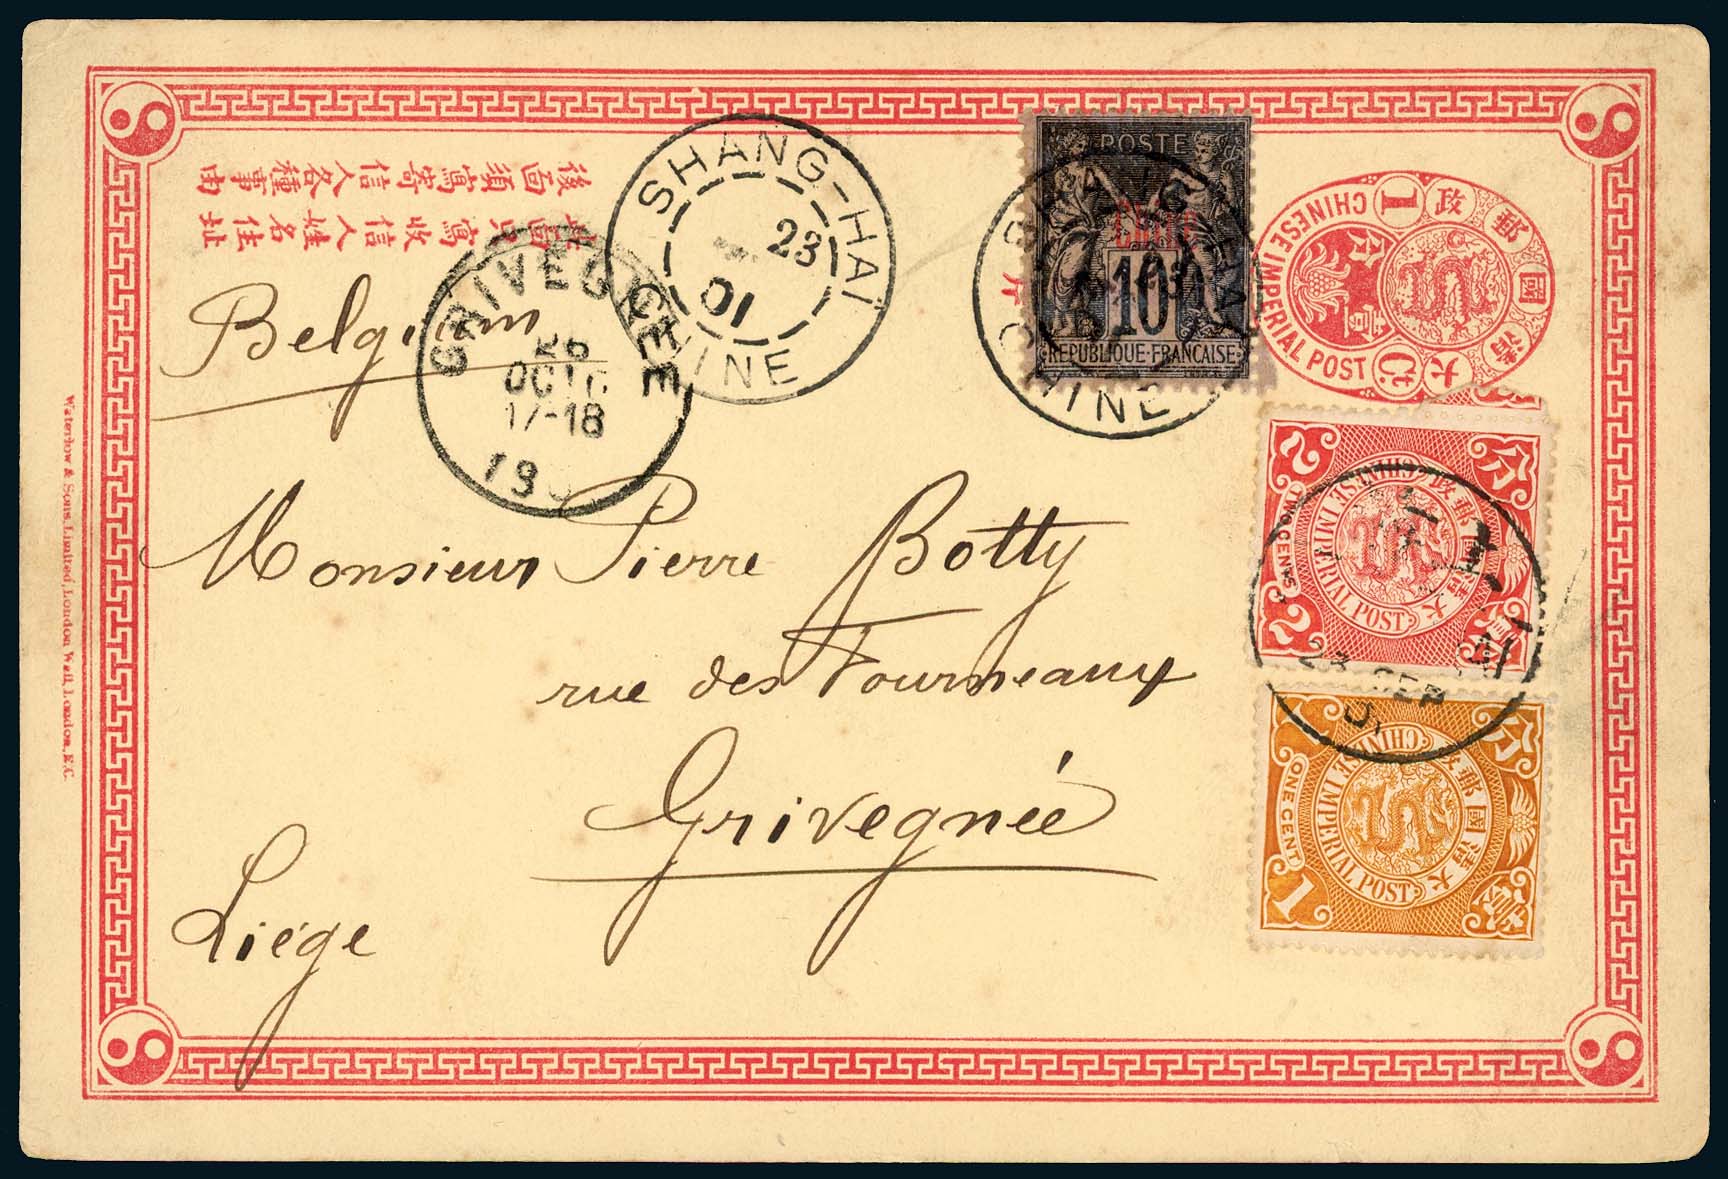 後面須寫寄信人各種事由
此面只寫收信人姓名住址
SHANG-HAI
23
01
CHINE
POSTE
Chine
10
REPUBLIQUE FRANCAISE
CHINE
大清國郵政
CHINESE IMPERIAL POST
1
Ct.
壹分
Belgium
GRIVEGNEE
26
OCTO
17-18
19
分
2
TWO CENTS
CHINESE IMPERIAL POST
大清國郵政
2
上
23 SEP
01
Monsieur Pierre Botty
rue des Fourneaux
Grivegnée
Liége
分
ONE CENT
CHINESE IMPERIAL POST
大清國郵政
1
壹
Waterlow & Sons, Limited, London Wall, London, E.C.